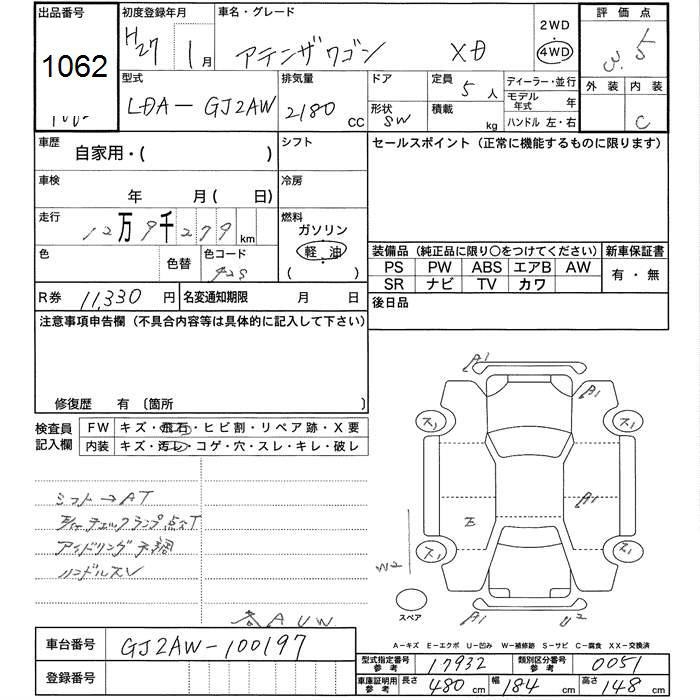 出品番号 初度登録年月 車名・グレード 2WD 4WD 評価点
1062 H27 1月 アテンザワゴン XD 3.5
型式 排気量 ドア 定員 5人 ディーラー・並行 外装 内装
LDA-GJ2AW 2180 CC 形状 SW 積載 kg モデル年式 年 C
ハンドル 左・右
車歴 自家用・( ) シフト セールスポイント (正常に機能するものに限ります)
車検 年 月( 日) 冷房
走行 12万9千279 km 燃料 ガソリン
軽油
( )
色 色替 色コード 42S
装備品 (純正品に限り○をつけてください) 新車保証書
PS PW ABS エアB AW 有・無
SR ナビ TV カワ
R券 11,330円 名変通知期限 月 日 後日品
注意事項申告欄 (不具合内容等は具体的に記入して下さい)
修復歴 有 〔箇所 〕
検査員記入欄 FW キズ・飛石・ヒビ割・リペア跡・X要
内装 キズ・汚レ・コゲ・穴・スレ・キレ・破レ
シフト→AT
チェックランプ点灯
アイドリング不調
ハンドルスレ
AUW
A1
A1
ス ス
E A1
ス ス
W2
スペア
A1 U2
A-キズ E-エクボ U-凹み W-補修跡 S-サビ C-腐食 XX-交換済
車台番号 GJ2AW-100197
登録番号
型式指定番号参考 17932 類別区分番号参考 0051
車庫証明用参考 長さ 480 cm 幅 184 cm 高さ 148 cm